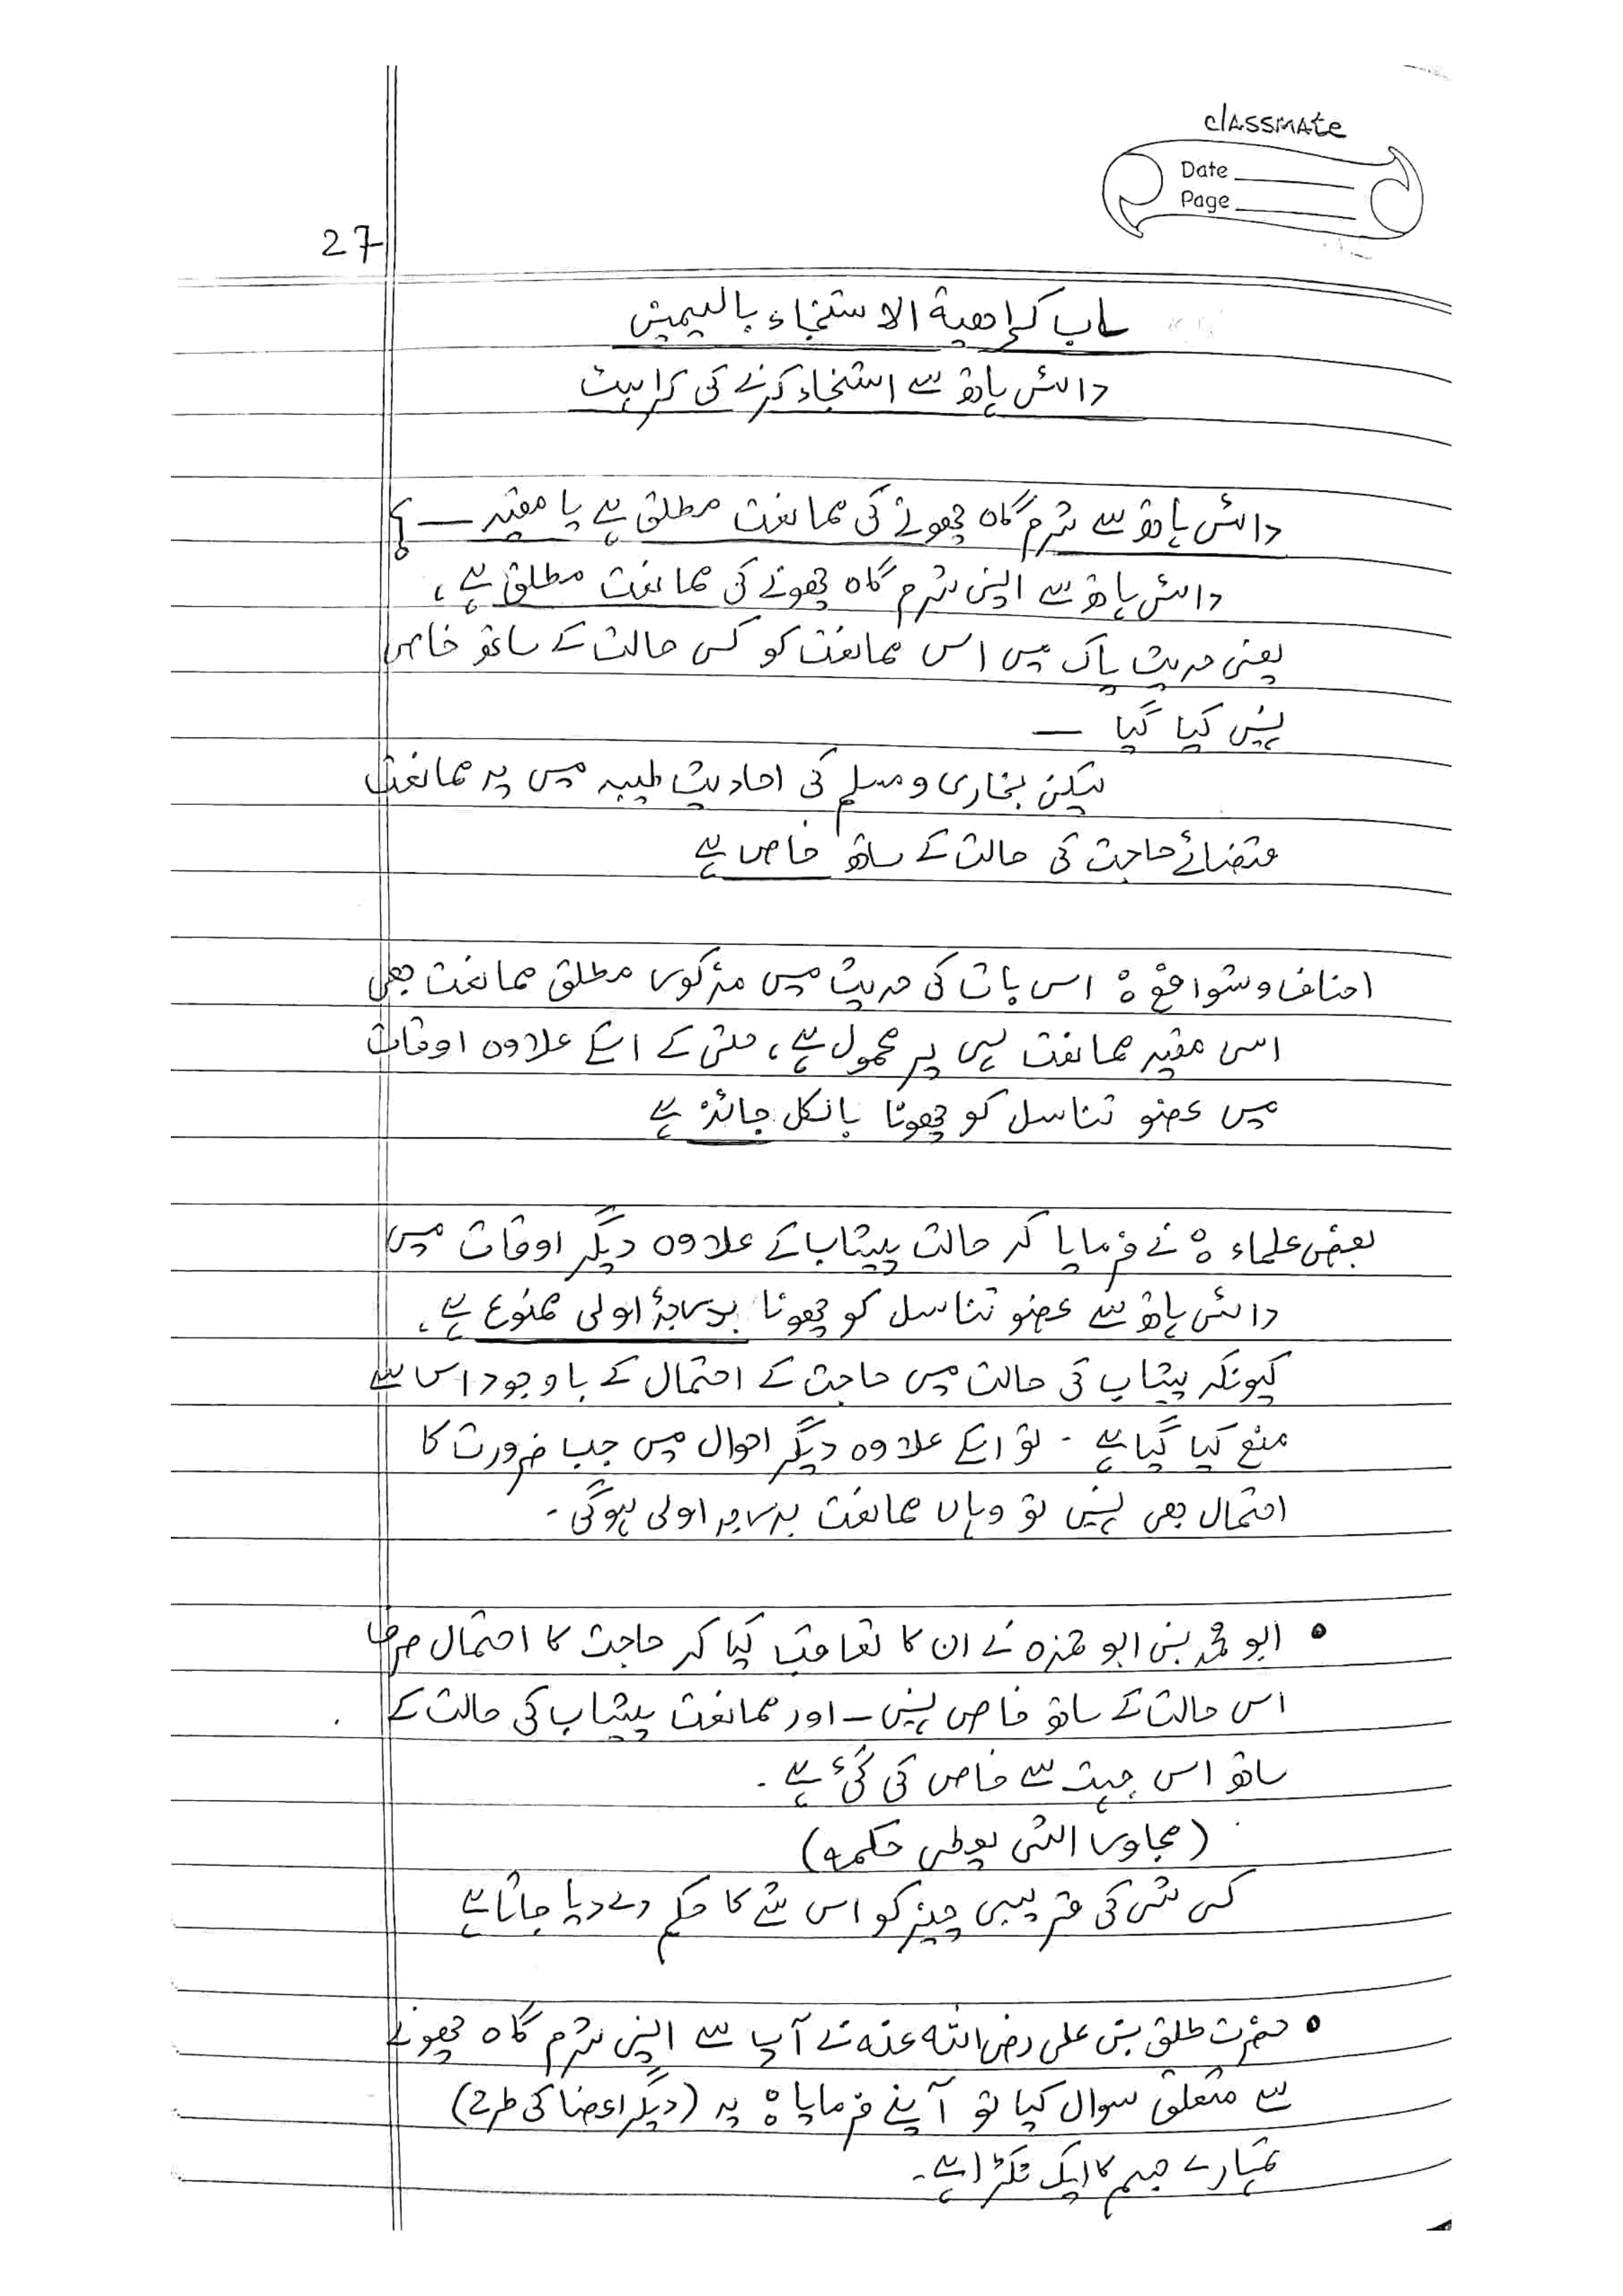 classmate
Date
Page
27
باب کراھیۃ الاستنجاء بالیمین
دائیں ہاتھ سے استنجاء کرنے کی کراہیت
دائیں ہاتھ سے شرم گاہ چھونے کی ممانعت مطلق ہے یا مقید — ؟
دائیں ہاتھ سے اپنی شرم گاہ چھونے کی ممانعت مطلق ہے،
یعنی حدیث پاک میں اس ممانعت کو کسی حالت کے ساتھ خاص
نہیں کیا گیا —
لیکن بخاری و مسلم کی احادیث طیبہ میں یہ ممانعت
قضائے حاجت کی حالت کے ساتھ خاص ہے
احناف و شوافع : اس بات کی حدیث میں مذکور مطلق ممانعت بھی
اسی مقید ممانعت ہی پر محمول ہے، حتی کے اسکے علاوہ اوقات
میں عضو تناسل کو چھونا بالکل جائز ہے
بعض علماء : نے فرمایا کہ حالت پیشاب کے علاوہ دیگر اوقات میں
دائیں ہاتھ سے عضو تناسل کو چھونا بدرجۂ اولی ممنوع ہے،
کیونکہ پیشاب کی حالت میں حاجت کے احتمال کے باوجود اس سے
منع کیا گیا ہے - تو اسکے علاوہ دیگر احوال میں جب ضرورت کا
احتمال بھی نہیں تو وہاں ممانعت بدرجہ اولی ہوگی -
• ابو محمد بن ابو حمزہ نے ان کا تعاقب کیا کہ حاجت کا احتمال صرف
اس حالت کے ساتھ خاص نہیں — اور ممانعت پیشاب کی حالت کے
ساتھ اس جہت سے خاص کی گئی ہے -
(مجاور الشی یعطی حکمه)
کسی شی کی قریبی چیز کو اس شے کا حکم دے دیا جاتا ہے
• حضرت طلق بن علی رضی اللہ عنہ نے آپ سے اپنی شرم گاہ چھونے
سے متعلق سوال کیا تو آپنے فرمایا : یہ (دیگر اعضا کی طرح)
تمہارے جسم کا ایک ٹکڑا ہے -